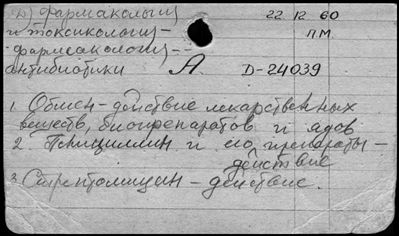 D) фармакология 22 12 60
и токсикология - п.м.
фармакология -
антибиотики А. D-24039
1. Обмен - действие лекарственных
веществ, биопрепаратов и ядов
2. Пенициллин и его препараты -
действие
3. Стрептомицин - действие.